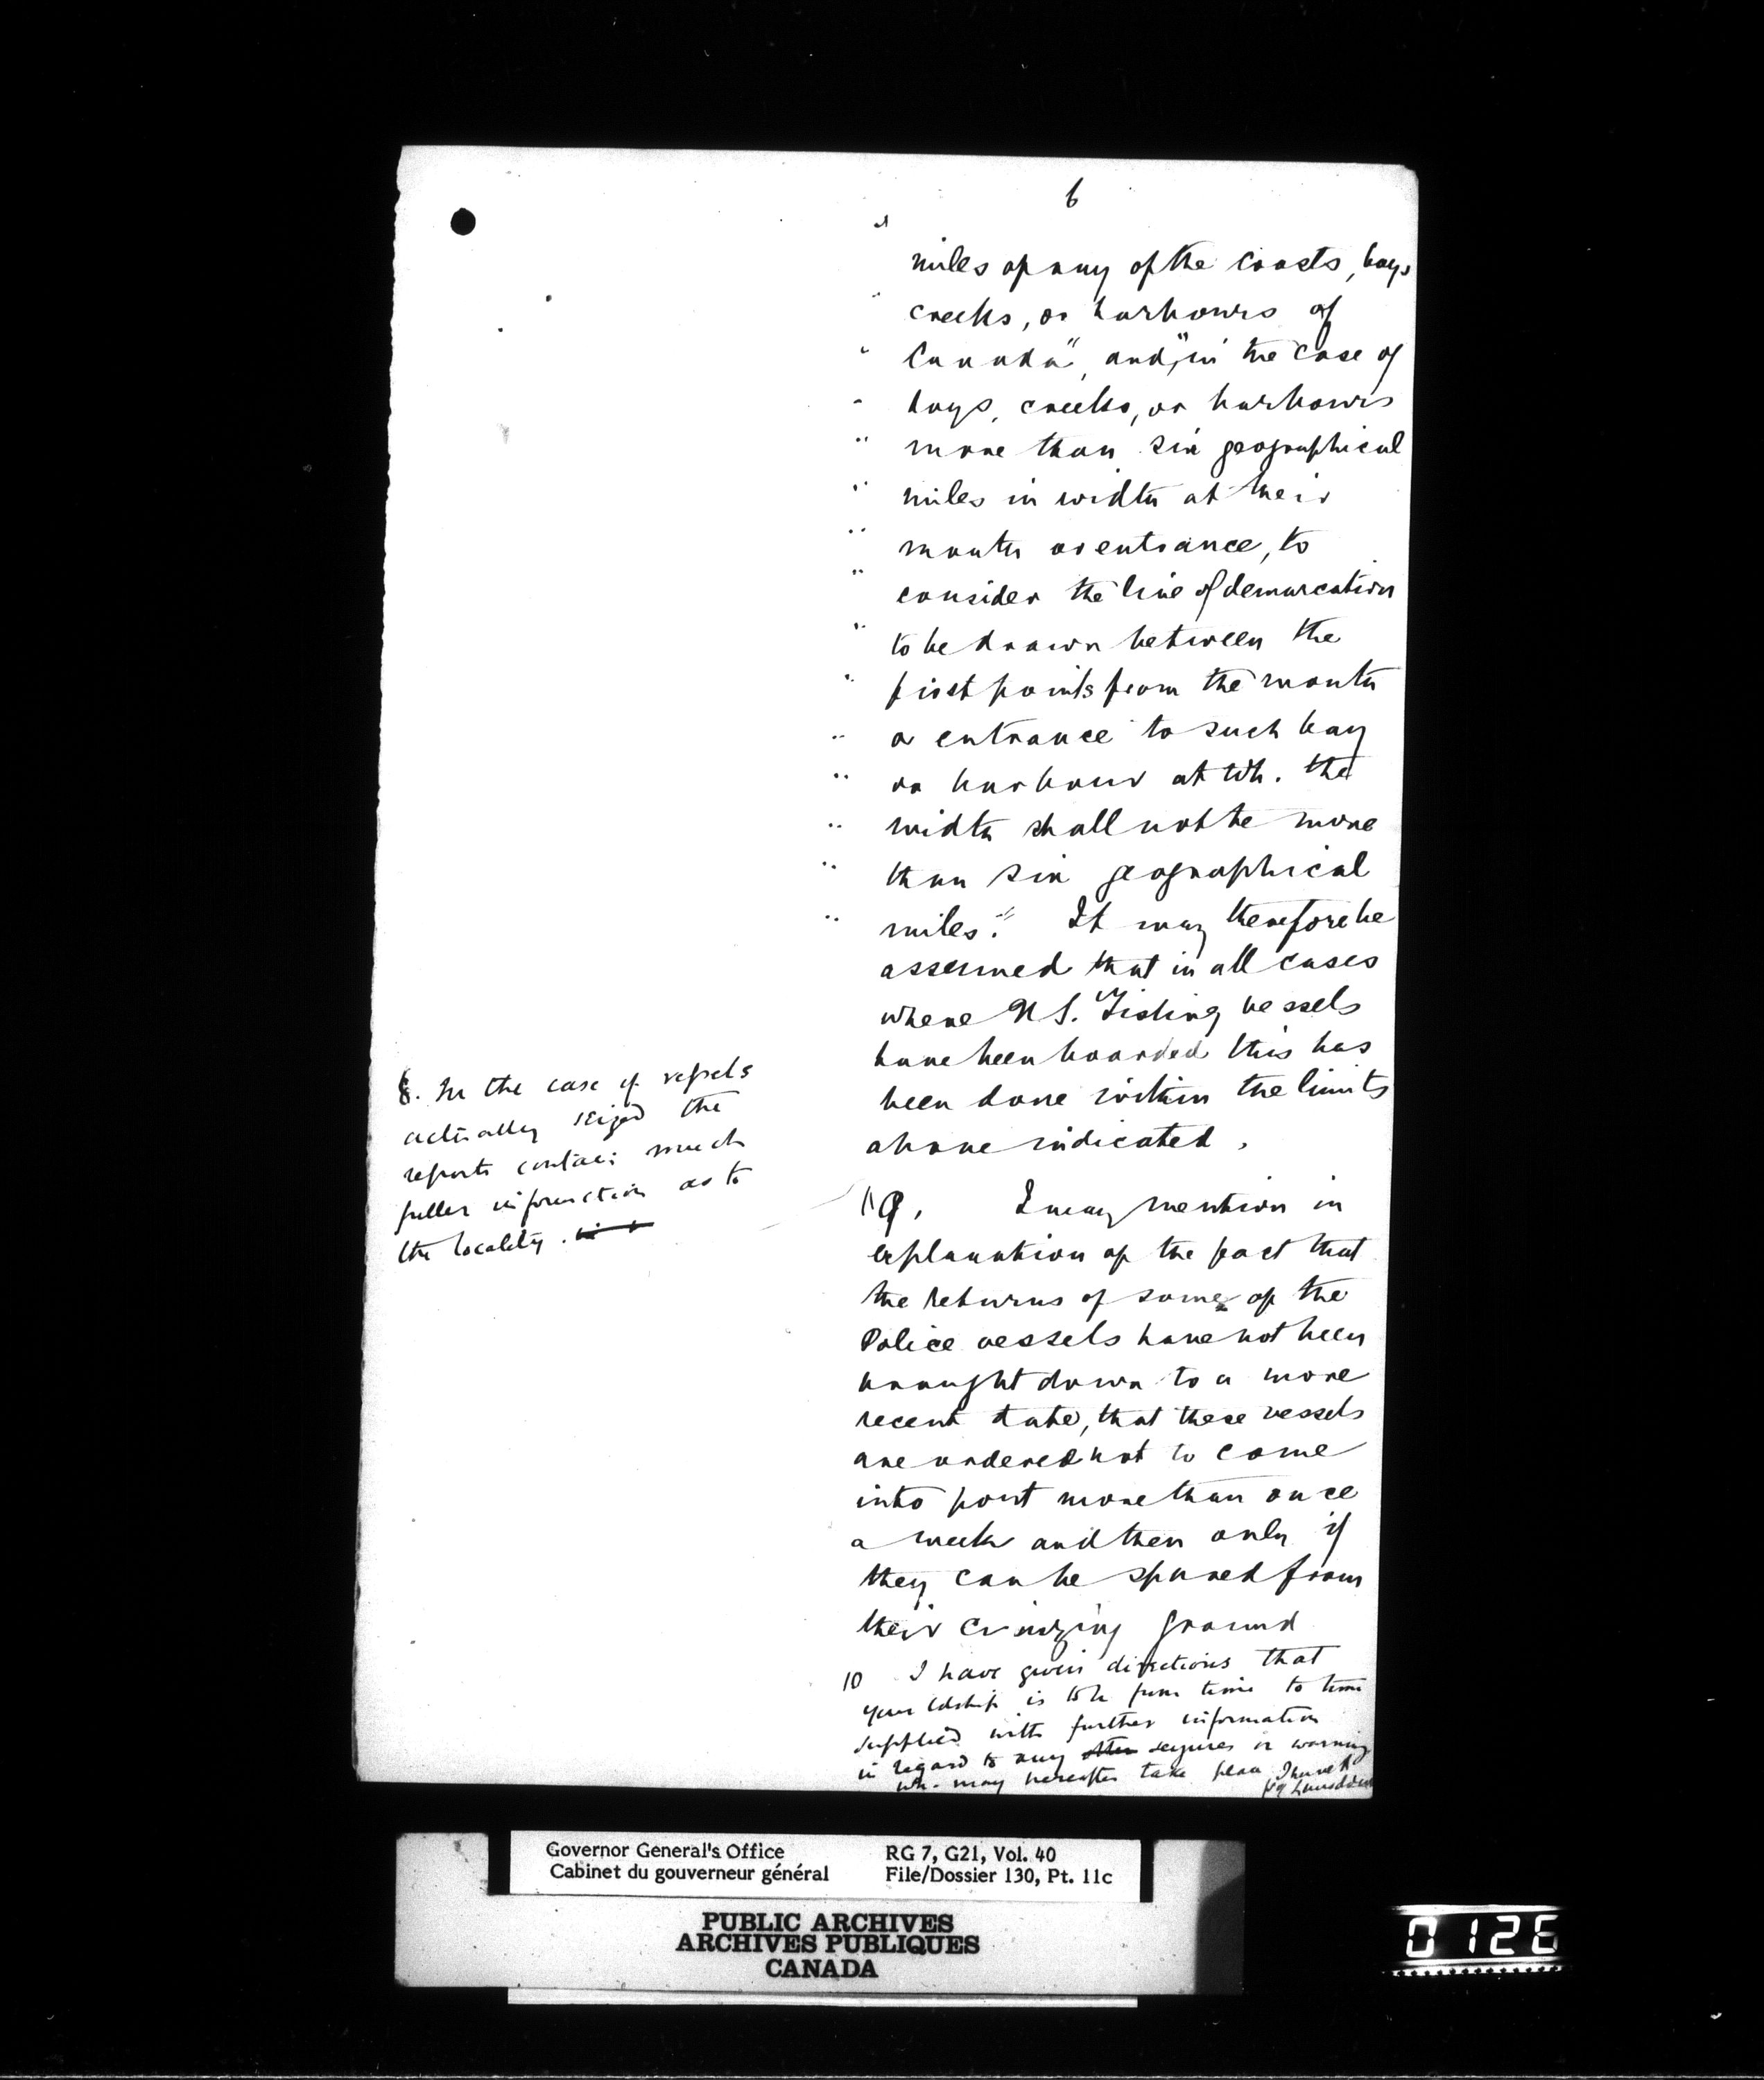 6
" miles of any of the coasts, bays
" creeks, or harbours of
" Canada", and, "in the case of
" bays, creeks, or harbours
" more than six geographical
" miles in width at their
" mouth or entrance, to
" consider the line of demarcation
" to be drawn between the
" first points from the mouth
" or entrance to such bay
" or harbour at wh. the
" width shall not be more
" than six geographical
" miles." It may therefore be
assumed that in all cases
where U S. Fishing vessels
have been boarded this has
been done within the limits
above indicated.
8. In the case of vessels
actually seized the
reports contain much
fuller information as to
the locality.
9. I may mention in
explanation of the fact that
the returns of some of the
Police vessels have not been
brought down to a more
recent date, that these vessels
are ordered not to come
into port more than once
a week and then only if
they can be spared from
their cruizing ground
10 I have given directions that
your Ldship is to be from time to time
supplied with further information
in regard to any other seizures or warning
wh. may hereafter take place I have &
Lansdowne
Governor General's Office
Cabinet du gouverneur général
RG 7, G21, Vol. 40
File/Dossier 130, Pt. 11c
PUBLIC ARCHIVES
ARCHIVES PUBLIQUES
CANADA
0126